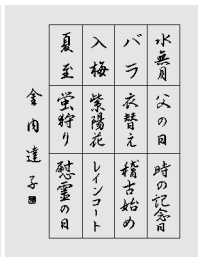 水無月
父の日
時の記念日
バラ
衣替え
稽古始め
入梅
紫陽花
レインコート
夏至
蛍狩り
慰霊の日
金内達子